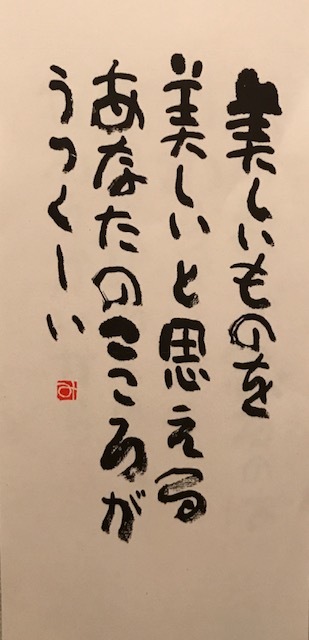 美しいものを
美しいと思える
あなたのこころが
うつくしい
み